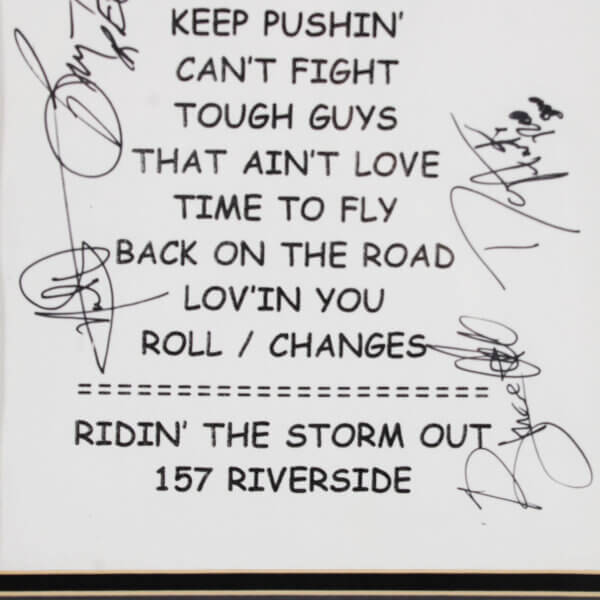 KEEP PUSHIN'
CAN'T FIGHT
TOUGH GUYS
THAT AIN'T LOVE
TIME TO FLY
BACK ON THE ROAD
LOV'IN YOU
ROLL / CHANGES
=========================
RIDIN' THE STORM OUT
157 RIVERSIDE
Bruce